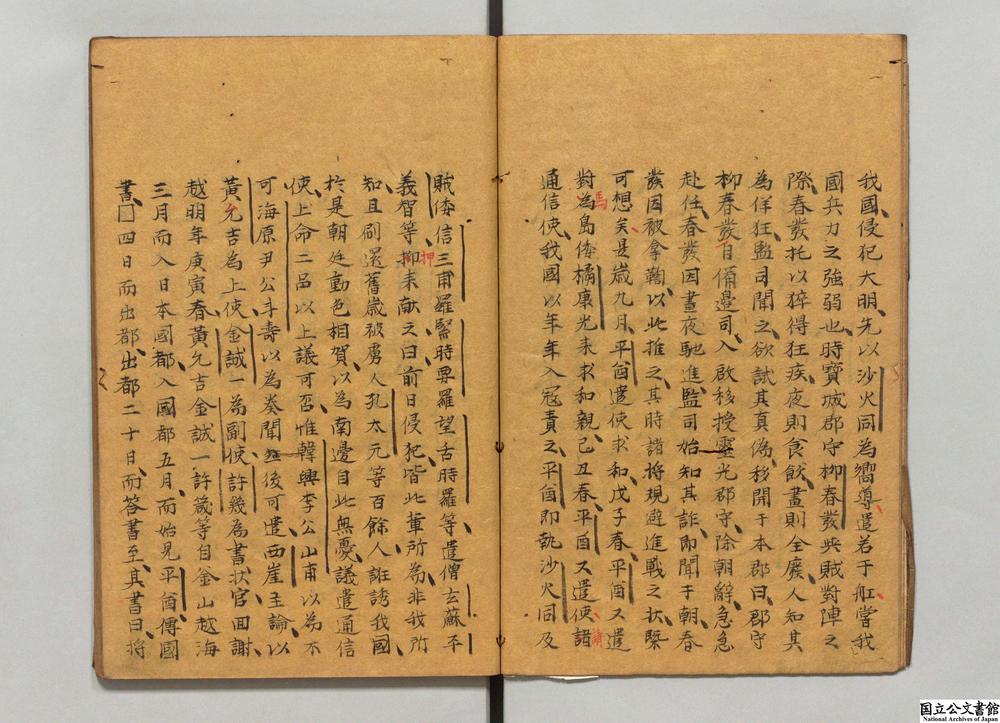 我國侵犯大明先以沙火同為嚮導遣若于舡嘗我
國兵力之強弱也時寶城郡守柳春發與賊對陣之
際春發托以猝得狂疾夜則食飲晝則全廢人知其
為佯狂監司聞之欲試其真偽移關于本郡曰郡守
柳春發自備邊司入啟移授靈光郡守除朝辭急急
赴任春發因晝夜馳進監司始知其詐即聞于朝春
發因被拿鞫以此推之其時諸將規避進戰之状槩
可想矣是歲九月平酋遣使求和戊子春平酋又遣
對為島倭橘康光未求和親己丑春平酋又遣使諸
馬
通信使我國以年年入寇責之平酋即執沙火同及
賊倭信三甫羅緊時要羅望古時羅等遣僧玄蘇平
義智等抑未献之曰前日侵犯皆此輩所為非我所
押
知且刷還舊歲被虜人孔太元等百餘人誑誘我國
於是朝廷動色相賀以為南邊自此無憂議遣通信
使上命二品以上議可否惟韓興李公山甫以為不
可海原尹公斗壽以為奏聞然後可遣西崖主論以
黃允吉為上使金誠一為副使許幾為書状官回謝
越明年庚寅春黃允吉金誠一許箴等自釜山越海
三月而入日本國都入國都五月而始見平酋傳國
書□四日而出都出都二十日而答書至其書曰將
国立公文書館
National Archives of Japan